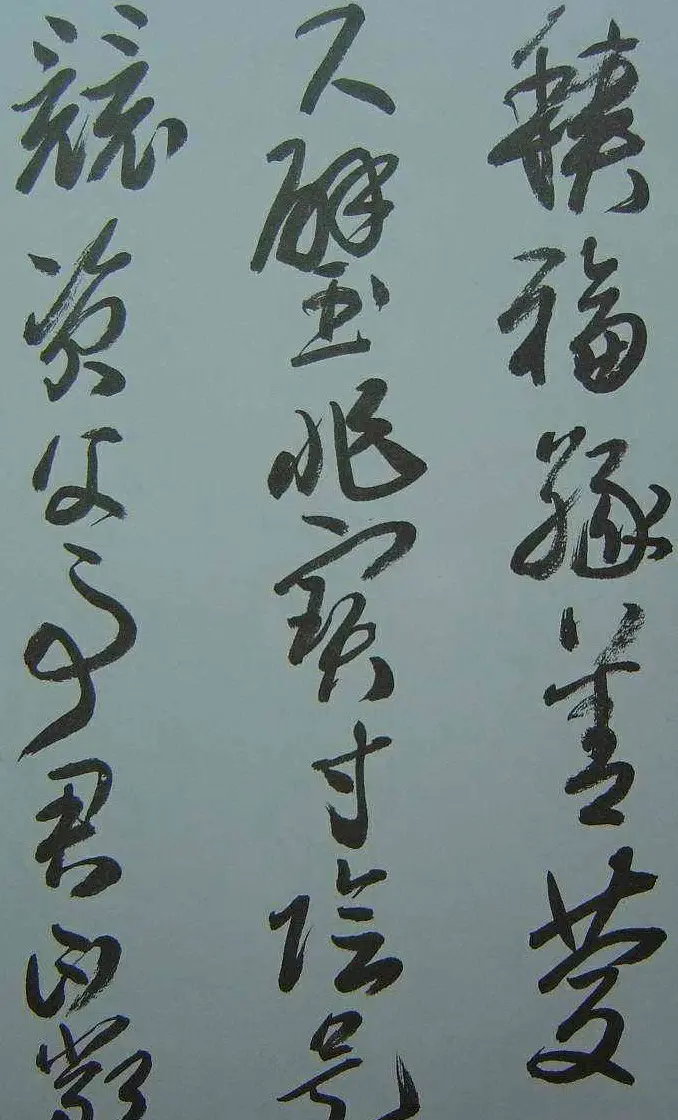 積福緣善慶
尺璧非寶寸陰是
競資父事君曰嚴